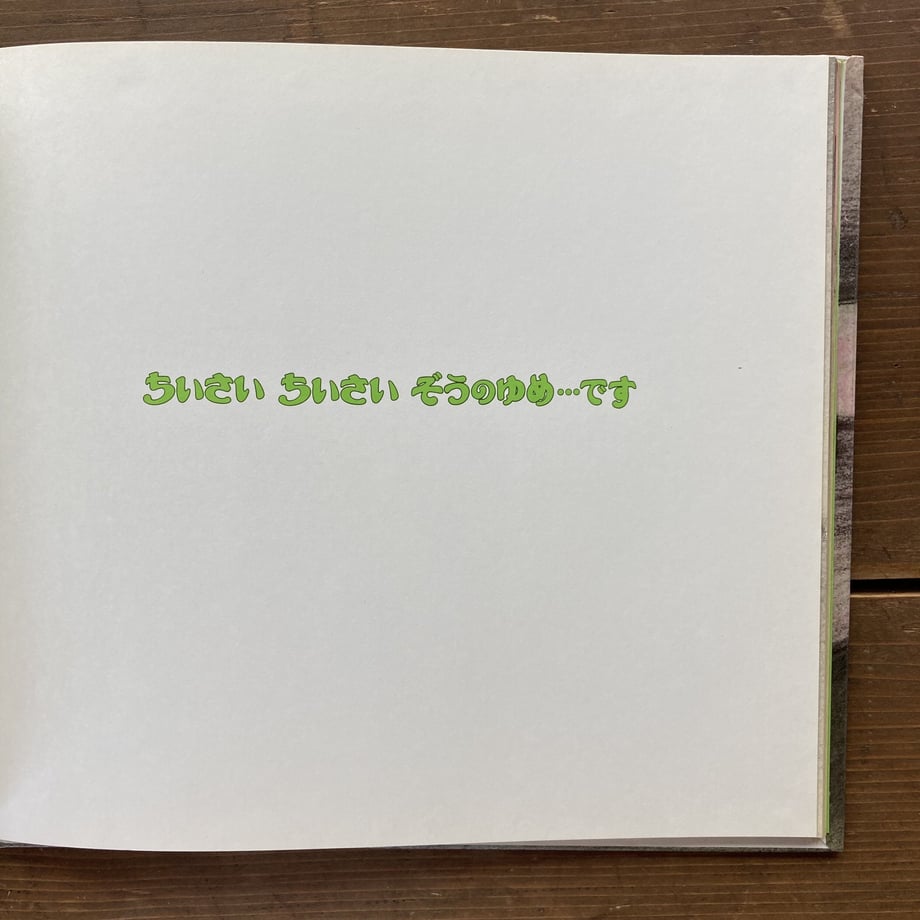 ちいさい ちいさい ぞうのゆめ…です